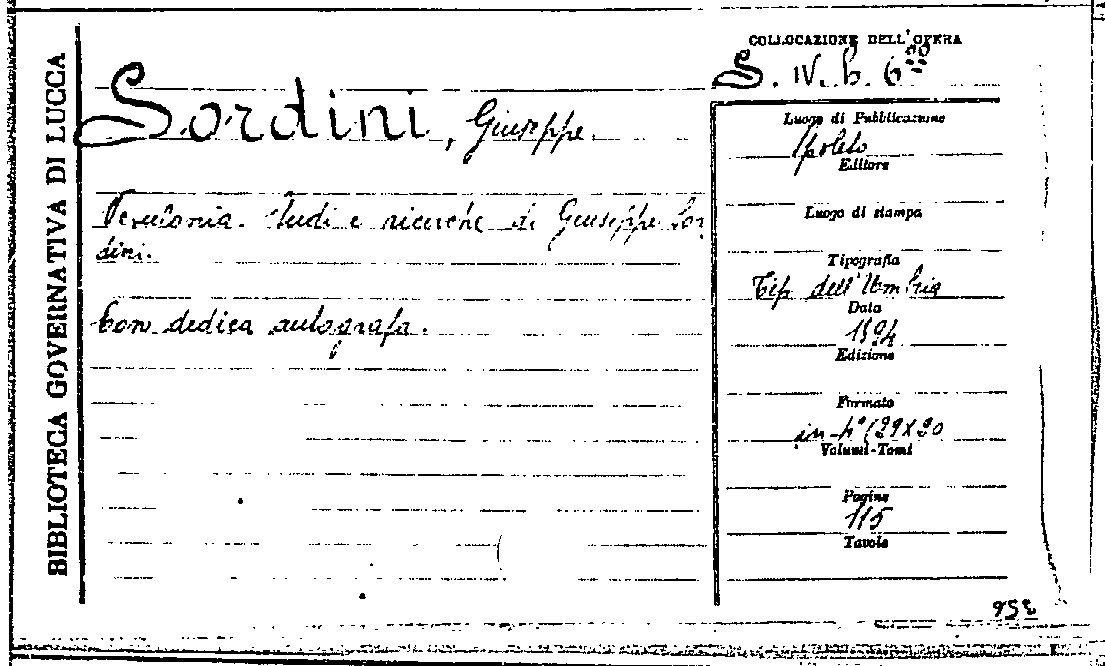 BIBLIOTECA GOVERNATIVA DI LUCCA
COLLOCAZIONE DELL'OPERA
S. IV. b. 6
Sordini, Giuseppe.
Vesulonia. Studi e ricerche di Giuseppe Sor
dini.
Con dedica autografa.
Luogo di Pubblicazione
Spoleto
Editore
Luogo di stampa
Tipografia
Tip dell'Umbria
Data
1894
Edizione
Formato
in-4° (29X20
Volumi-Tomi
Pagine
115
Tavole